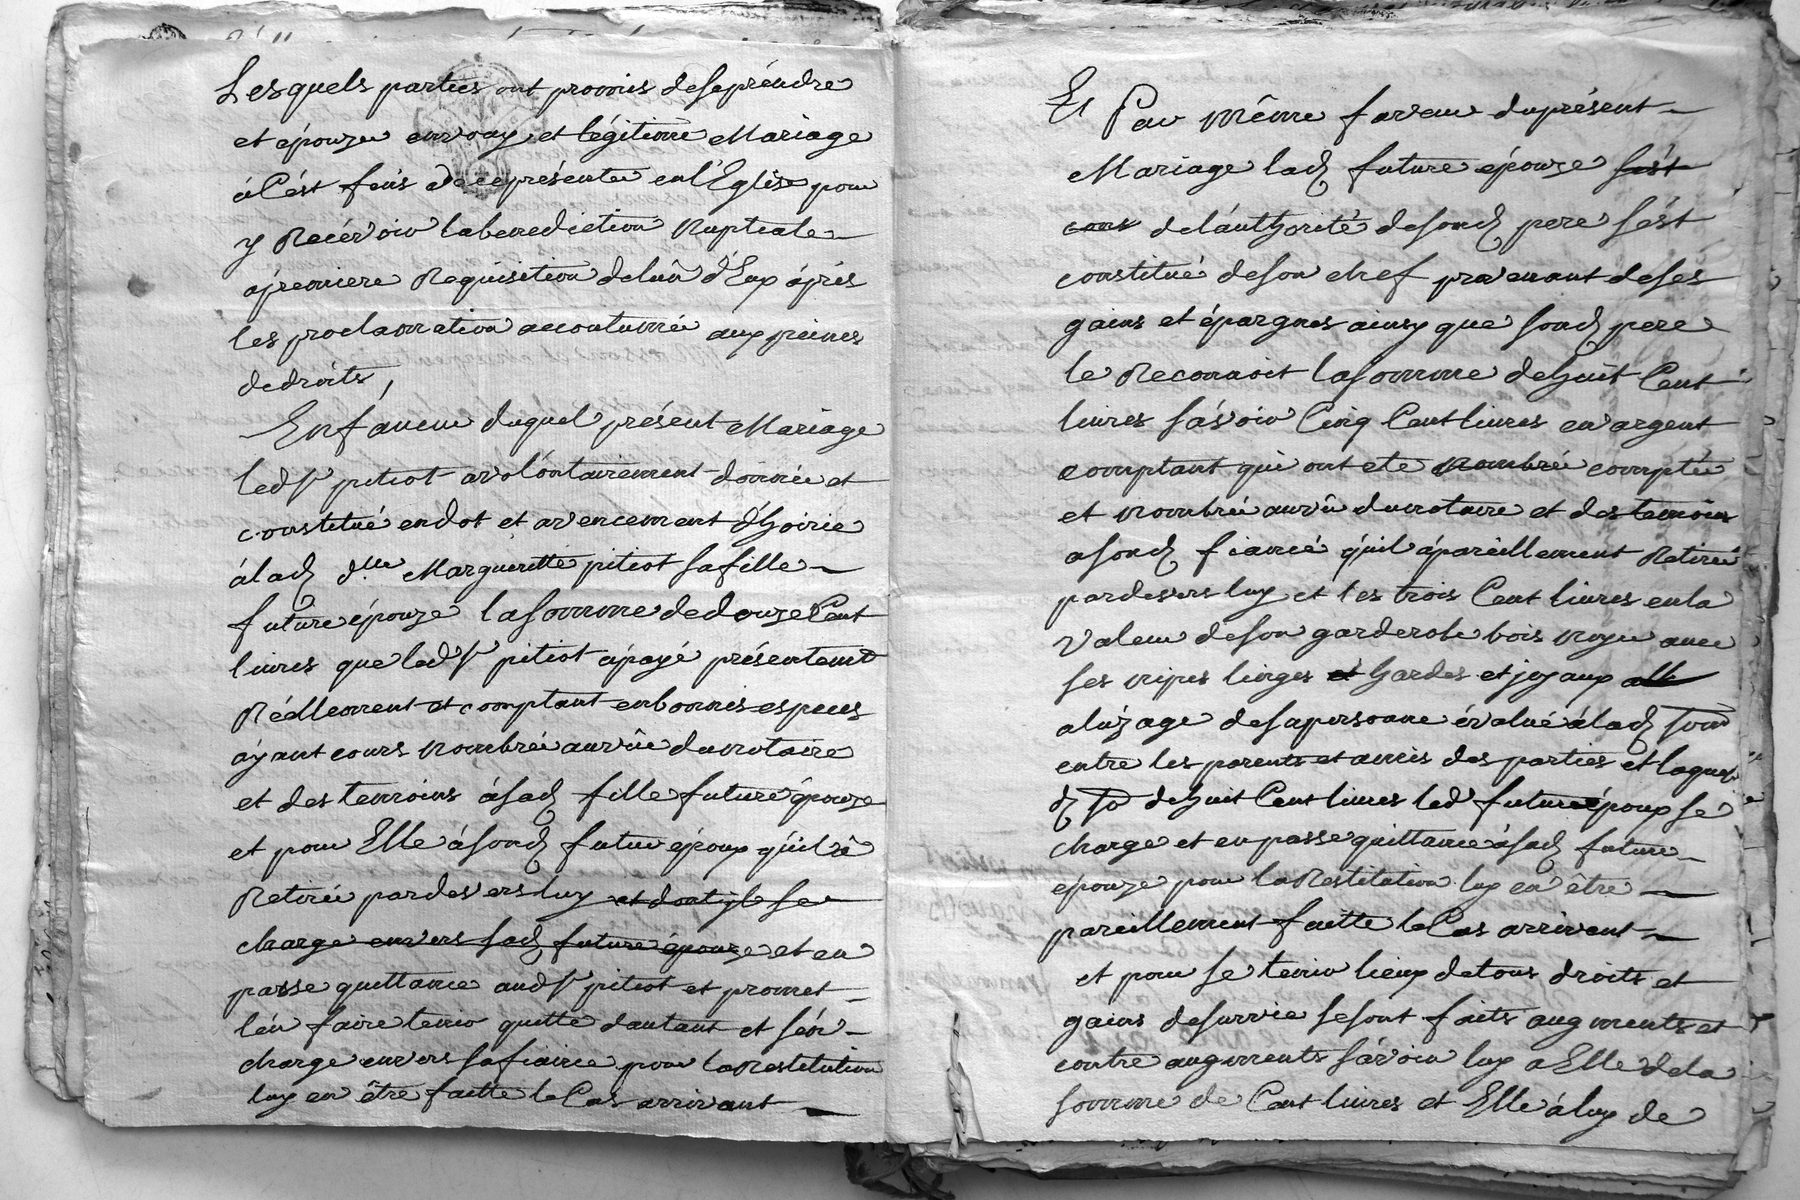 Lesquels parties ont promis de se préndre
et épouzer en vray et légitime Mariage
à Cést féns de se présenter en l'Eglise pour
y Recévoir la benediction Nuptiale
à premiere Requisition de lun d'Eux áprés
les proclamation accoutumée aux peines
de droits,
En fáveur duquel présent Mariage
led Sr pitiot a volóntairement donnée et
constitué en dot et avencement d'hoirie
á lad dlle Margueritte pitiot sa fille
future épouze la somme de douze Cent
livres que led Sr pitiot a payé présentemt
Réellement et comptant en bonnes especes
ayant cours Nombrée au vû du notaire
et des temoins á sad fille future épouze
et pour Elle á sond futur époux qu'il â
Retirée pardevers luy et dont il se
charge envers sad future épouze et en
passe quittance aud Sr pitiot et promet
l'én faire tenir quitte d'autant et s'én
charge envers sa fiancée pour la Restitution
luy en être faitte le Cas arrivant
Et Par Même faveur du présent
Mariage lad future épouze s'ést
cons de l'áuthorité de sond pere s'ést
constitué de son chef provenant de ses
gains et épargnes ainsy que sond pere
le Reconnoit la somme de huit Cent
livres sávoir Cinq Cent livres en argent
comptant qui ont ete Nombrée comptée
et Nombrée au vû du notaire et des temoins
a sond fiancé qúil á pareillement Retirée
pardevers luy et les trois Cent livres en la
Valeur de son garderobe bois Noyer avec
ses nipes linges et hardes et joyaux
a lúzage de sa personne évalué á lad somme
entre les parents et amis des parties et laquelle
d so de huit Cent livres led futur époux se
charge et en passe quittance á sad future
épouze pour la Restitution luy en être
pareillement faitte le Cas arrivant
et pour se tenir lieux de tous droits et
gains de survie se sont faits augments et
contre augments sávoir luy a Elle de la
somme de Cent livres et Elle á luy de